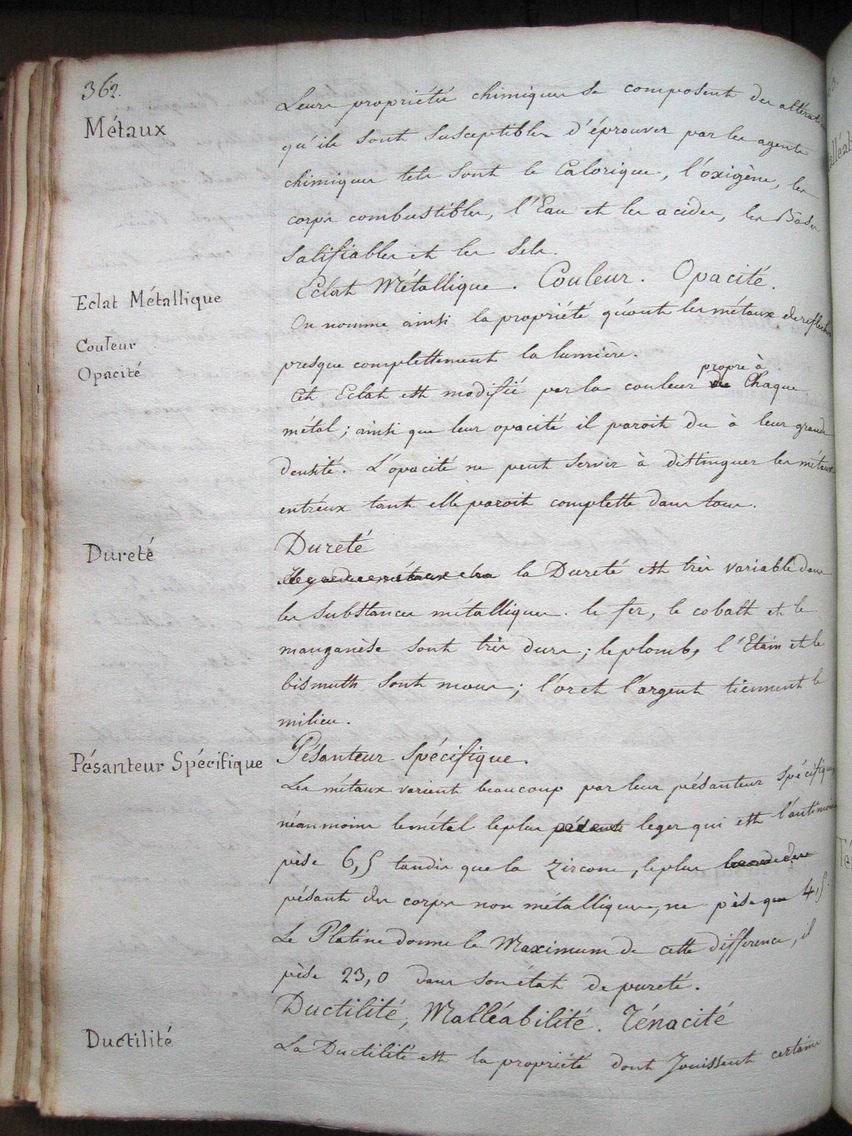 362.
Métaux
Leurs propriétés chimiques se composent des altérations
qu'ils sont susceptibles d'éprouver par les agents
chimiques tels sont le Calorique, l'oxigène, les
corps combustibles, l'Eau et les acides, les Bases
salifiables et les Sels.
Eclat Métallique
Couleur
Opacité
Eclat Métallique. Couleur. Opacité.
On nomme ainsi la propriété qu'ont les métaux de réfléchir
presque complettement la lumière.
Cet Eclat est modifié par la couleur propre à Chaque
métal; ainsi que leur opacité il paroit du à leur grande
densité. L'opacité ne peut servir à distinguer les métaux
entréux tant elle paroit complette dans tous.
Dureté
Dureté
la Dureté est très variable dans
les substances métalliques. le fer, le cobalt et le
manganèse sont très durs; le plomb, l'Etain et le
bismuth sont mous; l'or et l'argent tiennent le
milieu.
Pésanteur Spécifique
Pésanteur Spécifique.
Les métaux varient beaucoup par leur pésanteur spécifique
néanmoins le métal le plus leger qui est l'antimoine
pèse 6,5 tandis que la Zircone, le plus
pésant des corps non métalliques, ne pèse que 4,5.
Le Platine donne le Maximum de cette difference, il
pèse 23,0 dans son état de pureté.
Ductilité
Ductilité, Malléabilité. Ténacité
La Ductilité est la propriété dont Jouissent certains